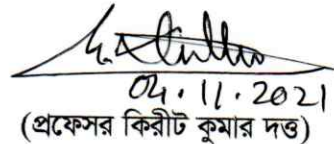 04.11.2021
(প্রফেসর কিরীট কুমার দত্ত)